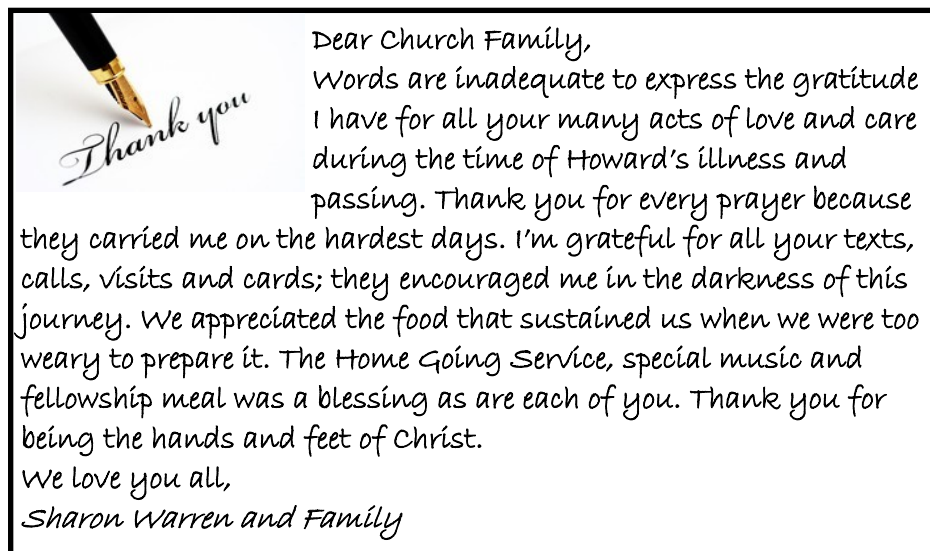 Thank you
Dear Church Family,
Words are inadequate to express the gratitude
I have for all your many acts of love and care
during the time of Howard's illness and
passing. Thank you for every prayer because
they carried me on the hardest days. I'm grateful for all your texts,
calls, visits and cards; they encouraged me in the darkness of this
journey. We appreciated the food that sustained us when we were too
weary to prepare it. The Home Going Service, special music and
fellowship meal was a blessing as are each of you. Thank you for
being the hands and feet of Christ.
We love you all,
Sharon Warren and Family